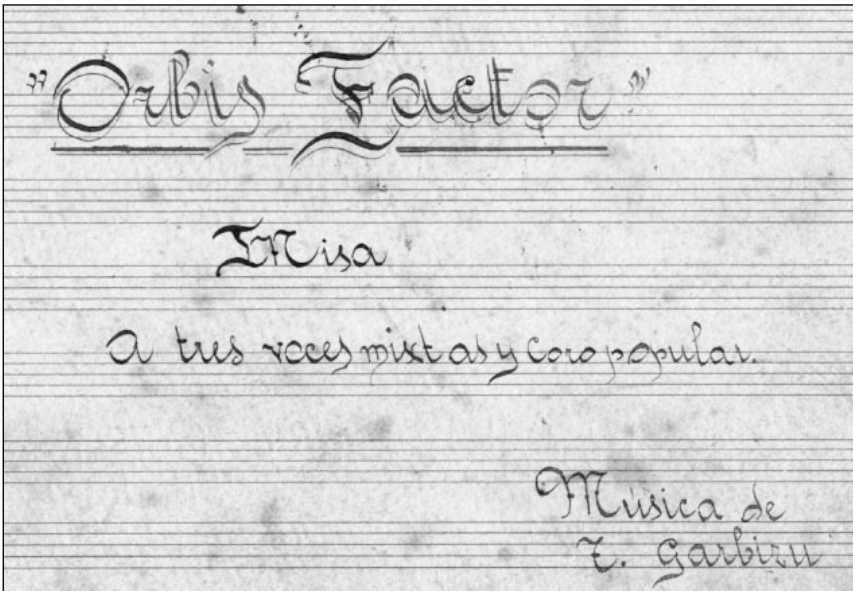 "Orbis Factor"
Misa
A tres voces mixtas y Coro popular.
Música de
T. Garbizu